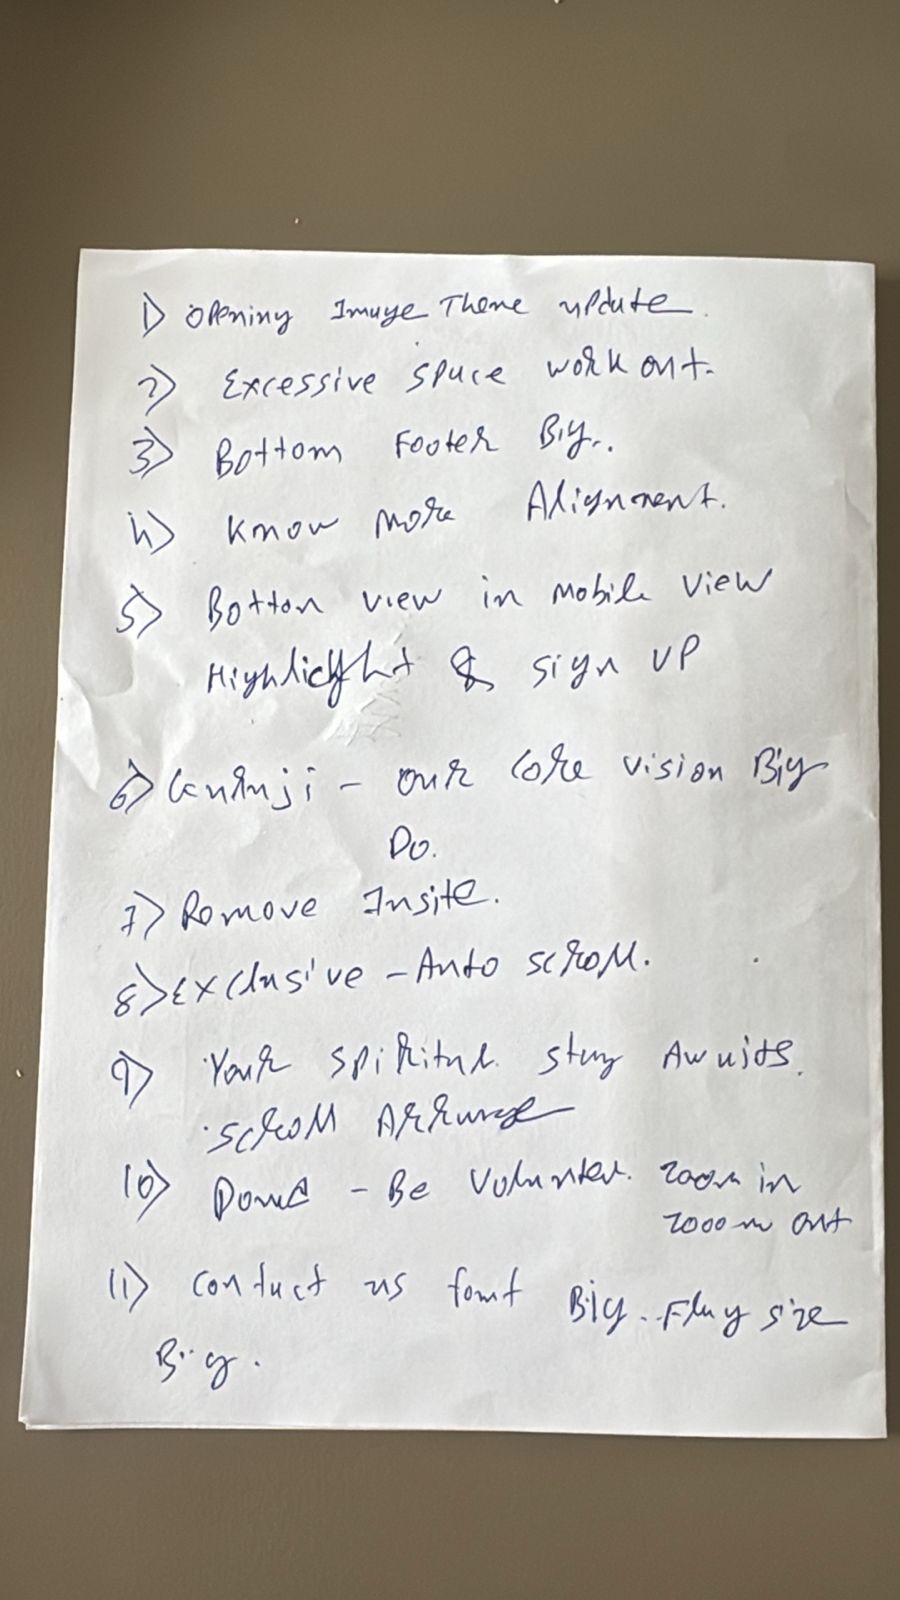 1) Opening Image Theme update.
2) Excessive space work out.
3) Bottom Footer Big..
4) Know more Alignment.
5) Bottom view in mobile view
Highlight & sign up
6) - our Core vision Big
Do.
7) Remove Insite.
8) Exclusive - Auto scroll.
9) Your spiritual stay Awaits.
scroll Arrange
10) - Be Volunteer. zoom in
zooom out
11) contact us font Big.. Flag size
Big.